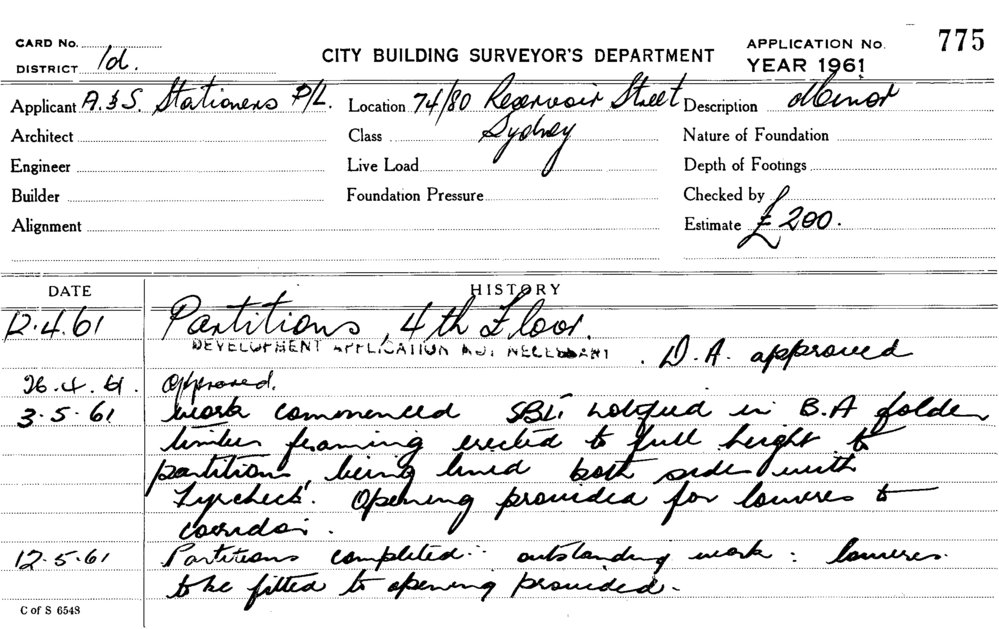 CARD No.
DISTRICT 1d.
CITY BUILDING SURVEYOR'S DEPARTMENT
APPLICATION No. 775
YEAR 1961
Applicant A. & S. Stationers P/L. Location 74/80 Reservoir Street Description Minor
Architect Class Sydney Nature of Foundation
Engineer Live Load Depth of Footings
Builder Foundation Pressure Checked by
Alignment Estimate £ 200.
DATE HISTORY
12.4.61 Partitions, 4th Floor.
DEVELOPMENT APPLICATION NOT NECESSARY . D.A. approved
26.4.61 Approved.
3.5.61 Work commenced notified in B.A folder
timber framing erected to full height to
partitions, being lined both sides with
Opening provided for louvres to
corridor.
12.5.61 Partitions completed: outstanding work: louvres
to be fitted to opening provided.
C of S 6548